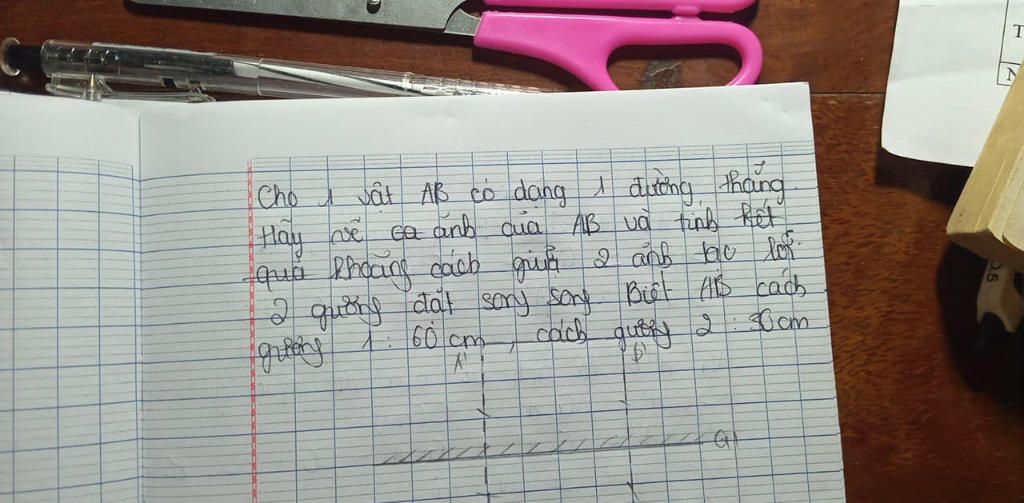 Cho 1 vật AB có dạng 1 đường thẳng.
Hãy vẽ ca ảnh của AB và tính kết
quả khoảng cách giữa 2 ảnh tạo bởi
2 gương đặt song song Biết AB cách
gương 1: 60 cm, cách gương 2: 30cm
A' B'
G1
T
N